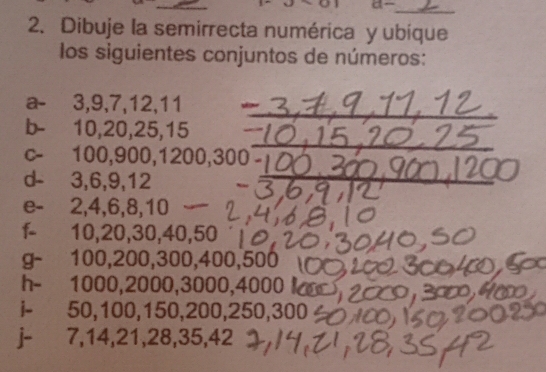 2. Dibuje la semirrecta numérica y ubique
los siguientes conjuntos de números:
a- 3,9,7,12,11 - 3,7,9,11,12
b- 10,20,25,15 -10,15,20,25
c- 100,900,1200,300 -100,300,900,1200
d- 3,6,9,12 -3,6,9,12
e- 2,4,6,8,10 - 2,4,6,8,10
f- 10,20,30,40,50 10,20,30,40,50
g- 100,200,300,400,500 100,200,300,400,500
h- 1000,2000,3000,4000 1000,2000,3000,4000,
i- 50,100,150,200,250,300 50,100,150,200,250
j- 7,14,21,28,35,42 7,14,21,28,35,42